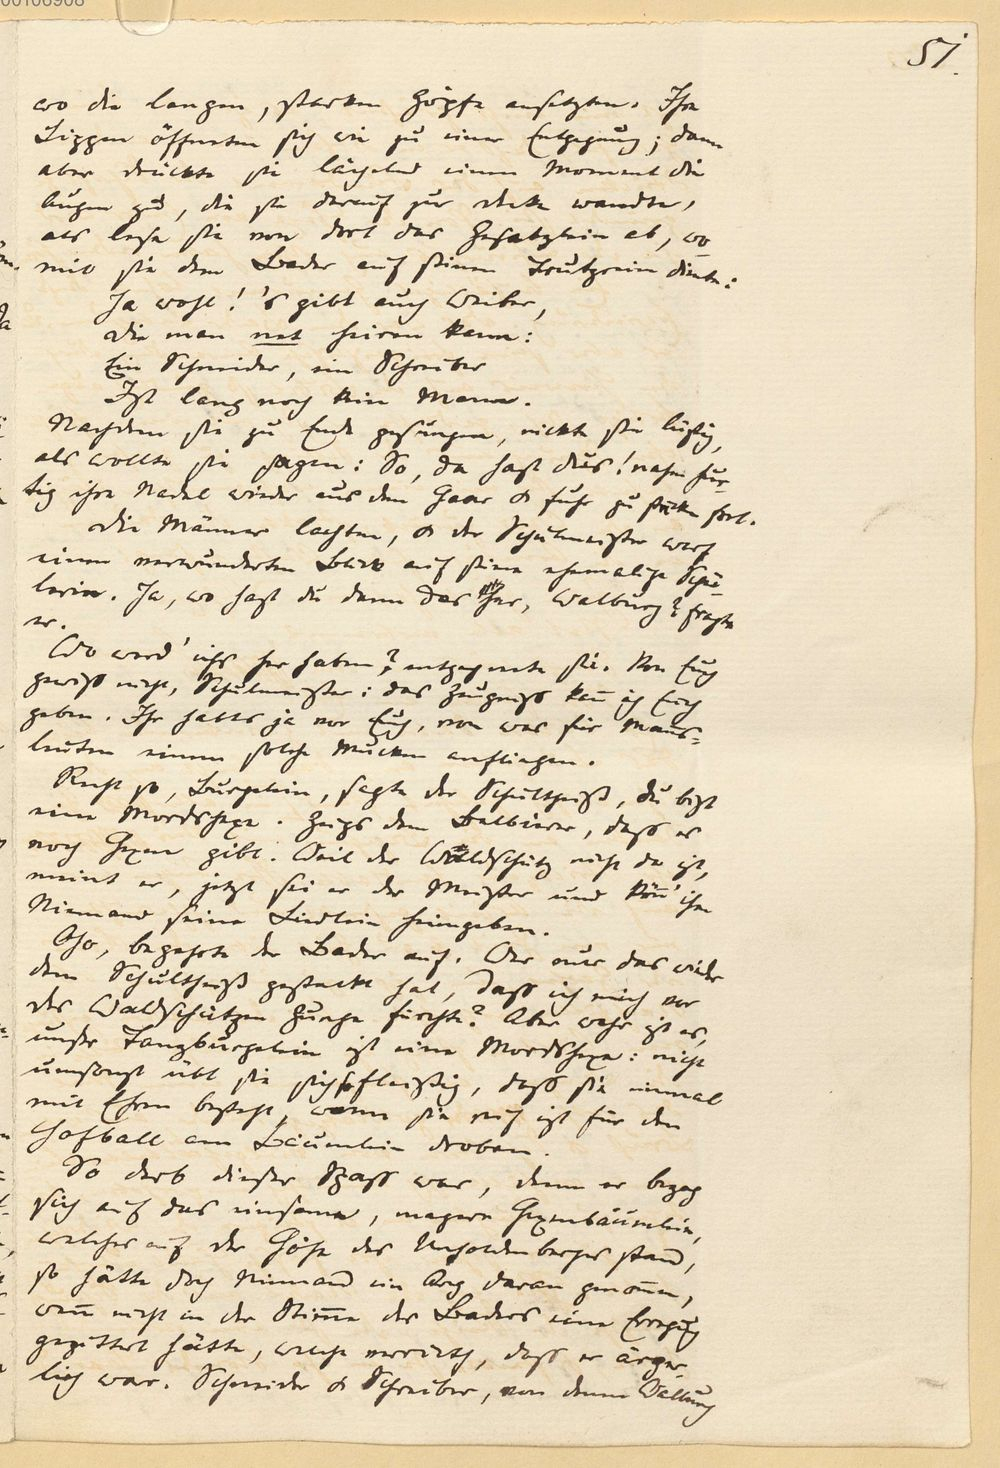 00106908
51.
wo die langen, starken Zöpfe ansetzten. Ihre
Lippen öffneten sich wie zu einer Entgegnung; dann
aber drückte sie lächelnd einen Moment die
Augen zu, die sie darauf zur Decke wandte,
als lese sie von dort das Gesetzlein ab, wo
mit sie dem Bader auf seinen Trutzreim diente:
Ja wohl! 's gibt auch Weiber,
Die man net heiren kann:
Ein Schneider, ein Schreiber
Ist lang noch kein Mann.
Nachdem sie zu Ende gesungen, nickte sie lustig,
als wollte sie sagen: So, da hast dus! nahm hur-
tig ihre Nadel wieder aus dem Haar & fuhr zu sticken fort.
Die Männer lachten, & der Schulmeister warf
einen verwunderten Blick auf seine ehemalige Schü-
lerin. Ja, wo hast du denn das her, Walburg? fragte
er.
Wo werd' ichs her haben? entgegnete sie. Von Euch
gewiss nicht, Schulmeister: das Zeugniss kan̄ ich Euch
geben. Ihr habts ja vor Euch, von was für Mans-
leuten einem solche Mucken anfliegen.
Recht so, Burgelein, sagte der Schultheiß, du bist
eine Mordshexe. Zeigs dem Balbierer, dass es
noch Hexen gibt. Weil der Waldschütz nicht da ist,
meint er, jetzt sei er der Meister und kön̄' ihm
Niemand seine Liedlein heimgeben.
Oho, begehrte der Bader auf. Wer nur das wieder
dem Schultheiß gesteckt hat, dass ich mich vor
des Waldschützen Zunge fürchte? Aber wahr ist es,
unser Tanzburgelein ist eine Mordshexe: nicht
umsonst übt sie sich so fleissig, dass sie einmal
mit Ehren besteht, wenn sie reif ist für den
Hofball am Bäumlein droben.
So derb dieser Spass war, denn er bezog
sich auf das einsame, magere Hexenbäumlein,
welches auf der Höhe des Unholdenberges stand,
so hätte doch Niemand ein Arg daran genom̄en,
wen̄ nicht in der Stim̄e des Baders eine Erregung
gezittert hätte, welche verrieth, dass er ärger-
lich war. Schneider & Schreiber, von denen Walburg